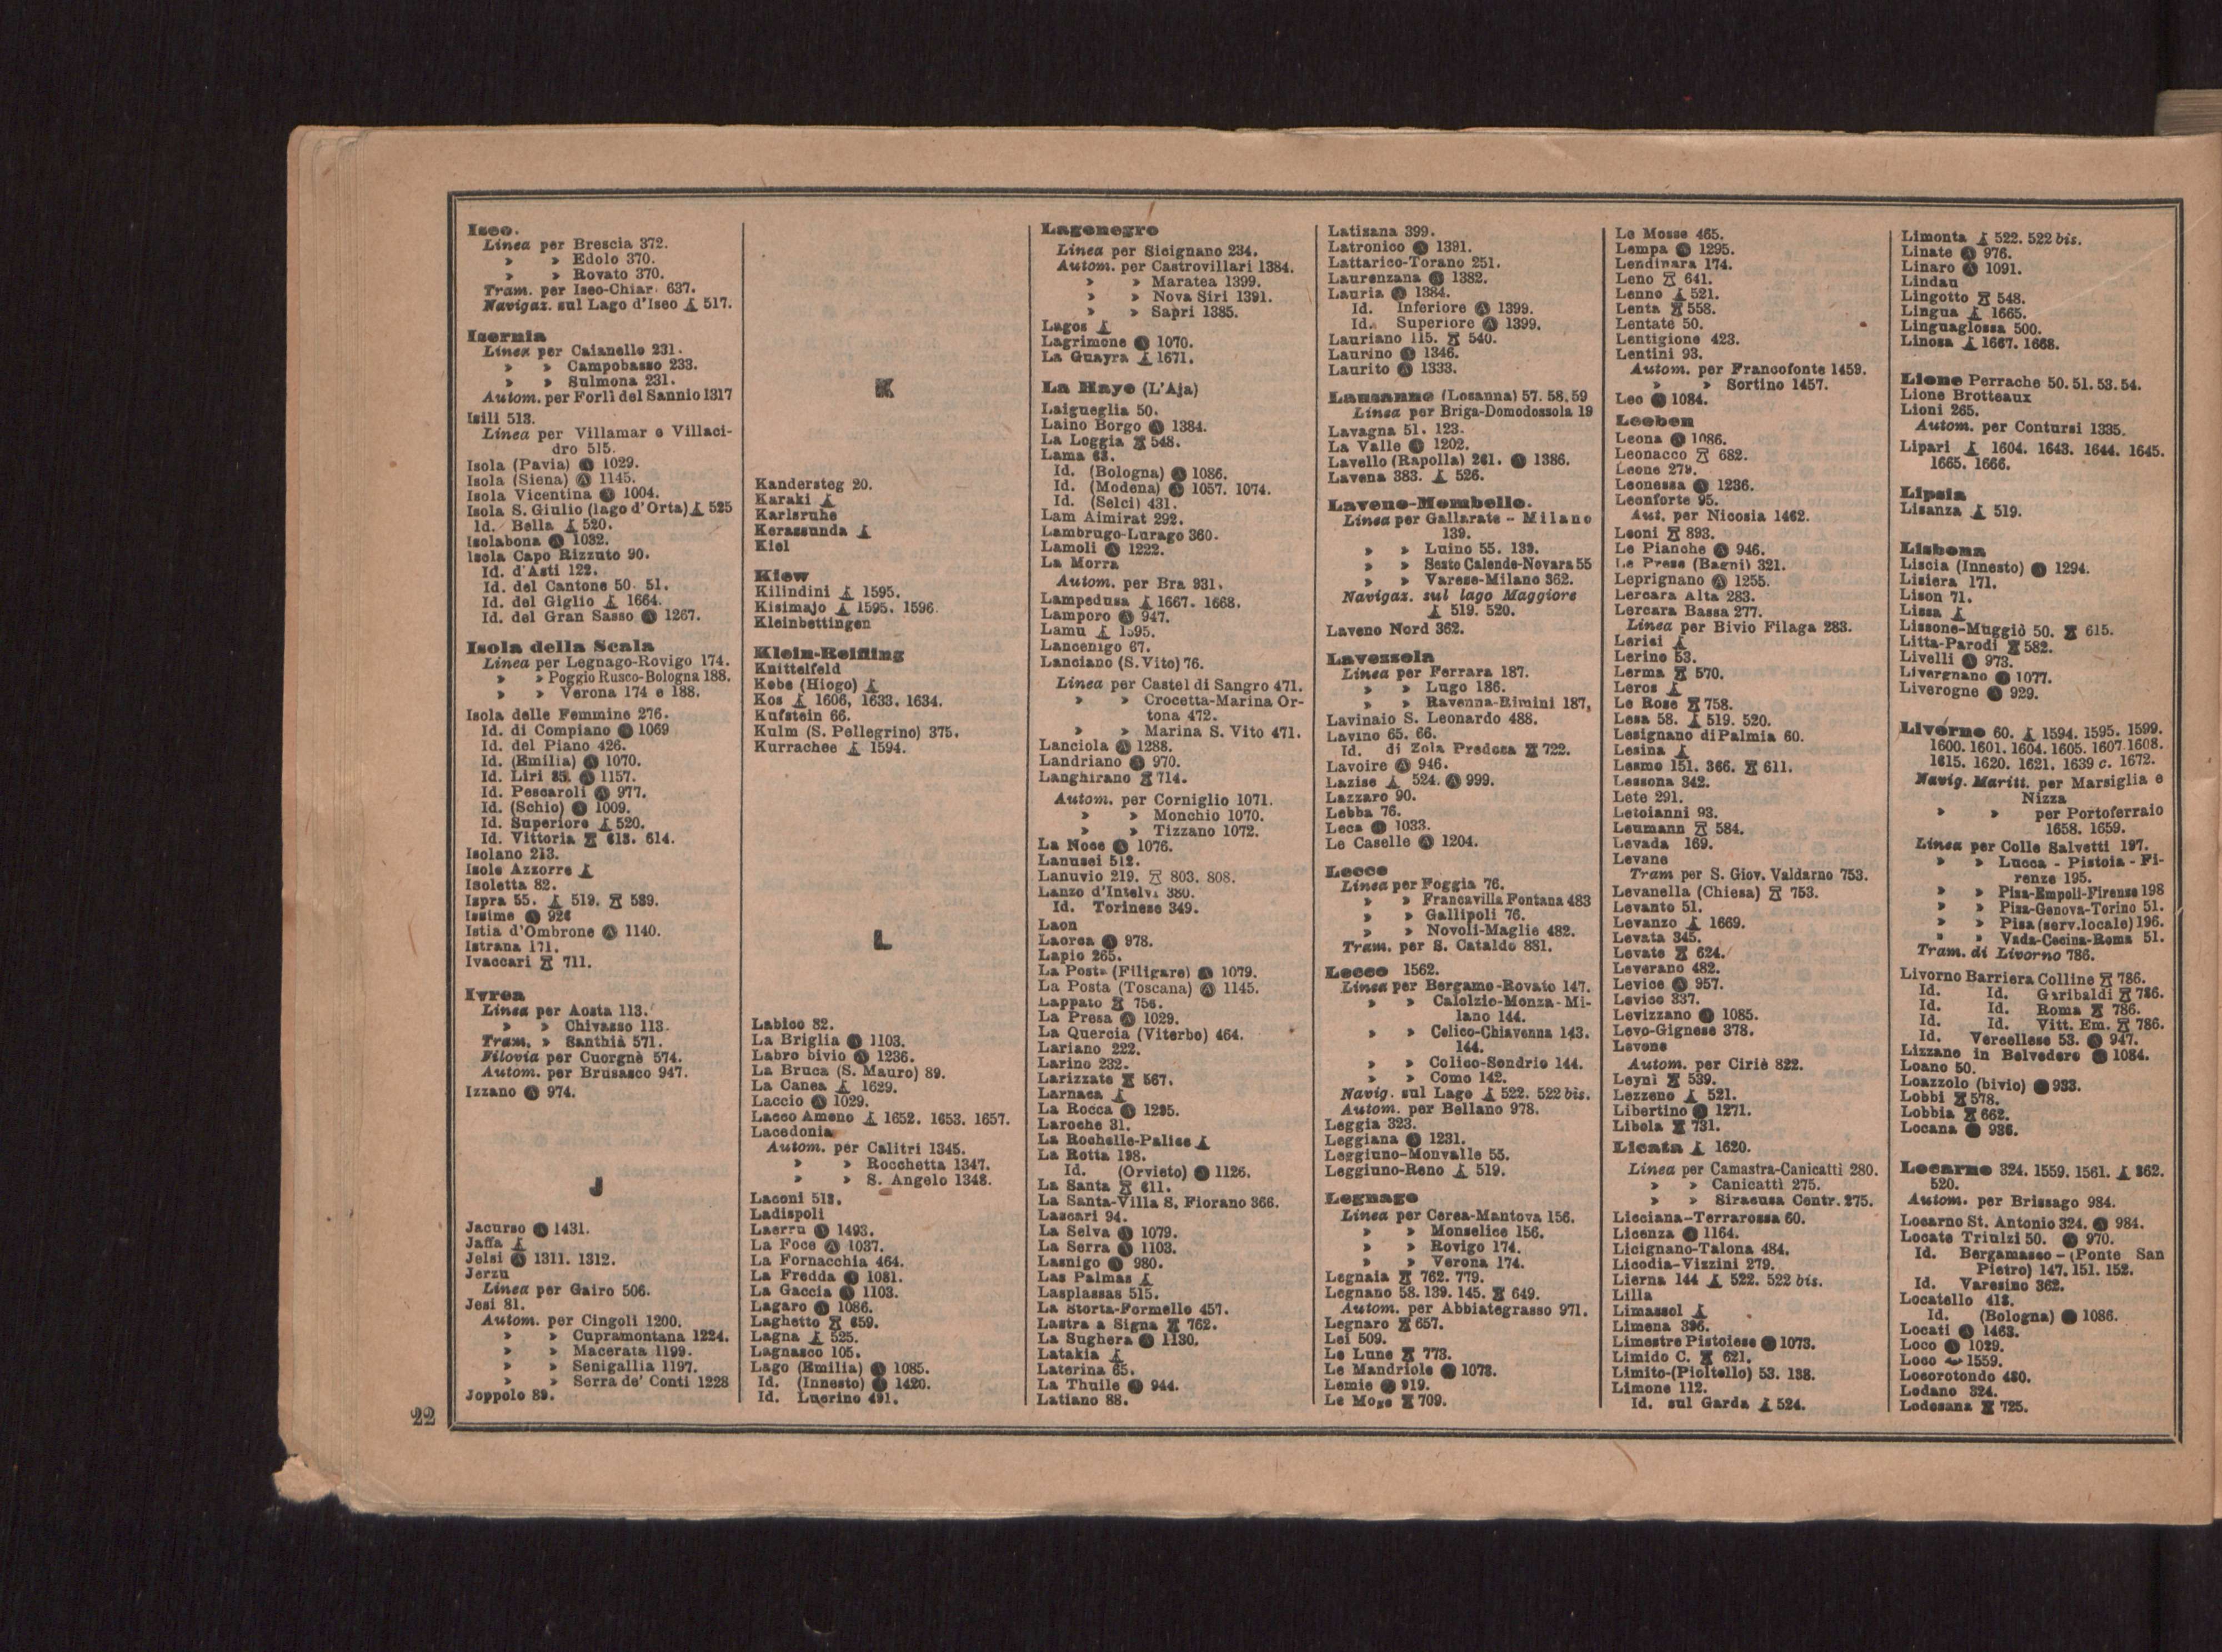 Iseo.
Linea per Brescia 372.
» » Edolo 370.
» » Rovato 370.
Tram. per Iseo-Chiar 637.
Navigaz. sul Lago d'Iseo 517.
Isernia
Linea per Caianello 231.
» » Campobasso 233.
» » Sulmona 231.
Autom. per Forlì del Sannio 1317
Isili 513.
Linea per Villamar e Villaci-
dro 515.
Isola (Pavia) 1029.
Isola (Siena) 1145.
Isola Vicentina 1004.
Isola S. Giulio (lago d'Orta) 525
Id. Bella 520.
Isolabona 1032.
Isola Capo Rizzuto 90.
Id. d'Asti 122.
Id. del Cantone 50. 51.
Id. del Giglio 1664.
Id. del Gran Sasso 1267.
Isola della Scala
Linea per Legnago-Rovigo 174.
» » Poggio Rusco-Bologna 188.
» » Verona 174 e 188.
Isola delle Femmine 276.
Id. di Compiano 1069
Id. del Piano 426.
Id. (Emilia) 1070.
Id. Liri 85. 1157.
Id. Pescaroli 977.
Id. (Schio) 1009.
Id. Superiore 520.
Id. Vittoria 613. 614.
Isolano 213.
Isole Azzorre
Isoletta 82.
Ispra 55. 519. 589.
Issime 926
Istia d'Ombrone 1140.
Istrana 171.
Ivaccari 711.
Ivrea
Linea per Aosta 113.
» » Chivasso 113.
Tram. » Santhià 571.
Filovia per Cuorgnè 574.
Autom. per Brusasco 947.
Izzano 974.
J
Jacurso 1431.
Jaffa
Jelsi 1311. 1312.
Jerzu
Linea per Gairo 506.
Jesi 81.
Autom. per Cingoli 1200.
» » Cupramontana 1224.
» » Macerata 1199.
» » Senigallia 1197.
» » Serra de' Conti 1228
Joppolo 89.
K
Kandersteg 20.
Karaki
Karlsruhe
Kerassunda
Kiel
Kiew
Kilindini 1595.
Kisimajo 1595. 1596
Kleinbettingen
Klein-Reifling
Knittelfeld
Kobe (Hiogo)
Kos 1606, 1633. 1634.
Kufstein 66.
Kulm (S. Pellegrino) 375.
Kurrachee 1594.
L
Labico 82.
La Briglia 1103.
Labro bivio 1236.
La Bruca (S. Mauro) 89.
La Canea 1629.
Laccio 1029.
Lacco Ameno 1652. 1653. 1657.
Lacedonia
Autom. per Calitri 1345.
» » Rocchetta 1347.
» » S. Angelo 1348.
Laconi 513.
Ladispoli
Laerru 1493.
La Foce 1037.
La Fornacchia 464.
La Fredda 1081.
La Gaccia 1103.
Lagaro 1086.
Laghetto 659.
Lagna 525.
Lagnasco 105.
Lago (Emilia) 1085.
Id. (Innesto) 1420.
Id. Lucrino 491.
Lagonegro
Linea per Sicignano 234.
Autom. per Castrovillari 1384.
» » Maratea 1399.
» » Nova Siri 1391.
» » Sapri 1385.
Lagos
Lagrimone 1070.
La Guayra 1671.
La Haye (L'Aja)
Laigueglia 50.
Laino Borgo 1384.
La Loggia 548.
Lama 68.
Id. (Bologna) 1086.
Id. (Modena) 1057. 1074.
Id. (Selci) 431.
Lam Aimirat 292.
Lambrugo-Lurago 360.
Lamoli 1222.
La Morra
Autom. per Bra 931.
Lampedusa 1667. 1668.
Lamporo 947.
Lamu 1595.
Lancenigo 67.
Lanciano (S. Vito) 76.
Linea per Castel di Sangro 471.
» » Crocetta-Marina Or-
tona 472.
» » Marina S. Vito 471.
Lanciola 1288.
Landriano 970.
Langhirano 714.
Autom. per Corniglio 1071.
» » Monchio 1070.
» » Tizzano 1072.
La Noce 1076.
Lanusei 512.
Lanuvio 219. 803. 808.
Lanzo d'Intelvi 380.
Id. Torinese 349.
Laon
Laorca 978.
Lapio 265.
La Posta (Filigare) 1079.
La Posta (Toscana) 1145.
Lappato 756.
La Presa 1029.
La Quercia (Viterbo) 464.
Lariano 222.
Larino 232.
Larizzate 567.
Larnaca
La Rocca 1295.
Laroche 31.
La Rochelle-Palice
La Rotta 198.
Id. (Orvieto) 1126.
La Santa 611.
La Santa-Villa S. Fiorano 366.
Lascari 94.
La Selva 1079.
La Serra 1103.
Lasnigo 980.
Las Palmas
Lasplassas 515.
La Storta-Formello 457.
Lastra a Signa 762.
La Sughera 1130.
Latakia
Laterina 65.
La Thuile 944.
Latiano 88.
Latisana 399.
Latronico 1391.
Lattarico-Torano 251.
Laurenzana 1382.
Lauria 1384.
Id. Inferiore 1399.
Id. Superiore 1399.
Lauriano 115. 540.
Laurino 1346.
Laurito 1333.
Lausanne (Losanna) 57. 58. 59
Linea per Briga-Domodossola 19
Lavagna 51. 123.
La Valle 1202.
Lavello (Rapolla) 261. 1386.
Lavena 383. 526.
Laveno-Mombello.
Linea per Gallarate - Milano
139.
» » Luino 55. 139.
» » Sesto Calende-Novara 55
» » Varese-Milano 362.
Navigaz. sul lago Maggiore
519. 520.
Laveno Nord 362.
Lavezzola
Linea per Ferrara 187.
» » Lugo 186.
» » Ravenna-Rimini 187,
Lavinaio S. Leonardo 488.
Lavino 65. 66.
Id. di Zola Predosa 722.
Lavoire 946.
Lazise 524. 999.
Lazzaro 90.
Lebba 76.
Leca 1033.
Le Caselle 1204.
Lecce
Linea per Foggia 76.
» » Francavilla Fontana 483
» » Gallipoli 76.
» » Novoli-Maglie 482.
Tram. per S. Cataldo 881.
Lecco 1562.
Linea per Bergamo-Rovato 147.
» » Calolzio-Monza-Mi-
lano 144.
» » Colico-Chiavenna 143.
144.
» » Colico-Sondrio 144.
» » Como 142.
Navig. sul Lago 522. 522 bis.
Autom. per Bellano 978.
Leggia 323.
Leggiana 1231.
Leggiuno-Monvalle 55.
Leggiuno-Reno 519.
Legnago
Linea per Cerea-Mantova 156.
» » Monselice 156.
» » Rovigo 174.
» » Verona 174.
Legnaia 762. 779.
Legnano 58. 139. 145. 649.
Autom. per Abbiategrasso 971.
Legnaro 657.
Lei 509.
Le Lune 773.
Le Mandriole 1073.
Lemie 919.
Le Mose 709.
Le Mosse 465.
Lempa 1295.
Lendinara 174.
Leno 641.
Lenno 521.
Lenta 558.
Lentate 50.
Lentigione 423.
Lentini 93.
Autom. per Francofonte 1459.
» » Sortino 1457.
Leo 1084.
Leoben
Leona 1086.
Leonacco 682.
Leone 279.
Leonessa 1236.
Leonforte 95.
Aut. per Nicosia 1462.
Leoni 893.
Le Pianche 946.
Le Prese (Bagni) 321.
Leprignano 1255.
Lercara Alta 283.
Lercara Bassa 277.
Linea per Bivio Filaga 283.
Lerici
Lerino 53.
Lerma 570.
Leros
Le Rose 758.
Lesa 58. 519. 520.
Lesignano di Palmia 60.
Lesina
Lesmo 151. 366. 611.
Lessona 342.
Lete 291.
Letoianni 93.
Leumann 584.
Levada 169.
Levane
Tram per S. Giov. Valdarno 753.
Levanella (Chiesa) 753.
Levanto 51.
Levanzo 1669.
Levata 345.
Levate 624.
Leverano 482.
Levice 957.
Levico 337.
Levizzano 1085.
Levo-Gignese 378.
Levone
Autom. per Ciriè 822.
Leynì 539.
Lezzeno 521.
Libertino 1271.
Libola 731.
Licata 1620.
Linea per Camastra-Canicattì 280.
» » Canicattì 275.
» » Siracusa Centr. 275.
Licciana-Terrarossa 60.
Licenza 1164.
Licignano-Talona 484.
Licodia-Vizzini 279.
Lierna 144 522. 522 bis.
Lilla
Limassol
Limena 396.
Limestre Pistoiese 1073.
Limido C. 621.
Limito-(Pioltello) 53. 138.
Limone 112.
Id. sul Garda 524.
Limonta 522. 522 bis.
Linate 976.
Linaro 1091.
Lindau
Lingotto 548.
Lingua 1665.
Linguaglossa 500.
Linosa 1667. 1668.
Lione Perrache 50. 51. 53. 54.
Lione Brotteaux
Lioni 265.
Autom. per Contursi 1335.
Lipari 1604. 1643. 1644. 1645.
1665. 1666.
Lipsia
Lisanza 519.
Lisbona
Liscia (Innesto) 1294.
Lisiera 171.
Lison 71.
Lissa
Lissone-Muggiò 50. 615.
Litta-Parodi 582.
Livelli 973.
Livergnano 1077.
Liverogne 929.
Livorno 60. 1594. 1595. 1599.
1600. 1601. 1604. 1605. 1607. 1608.
1615. 1620. 1621. 1639 c. 1672.
Navig. Maritt. per Marsiglia e
Nizza
» » per Portoferraio
1658. 1659.
Linea per Colle Salvetti 197.
» » Lucca - Pistoia - Fi-
renze 195.
» » Pisa-Empoli-Firenze 198
» » Pisa-Genova-Torino 51.
» » Pisa (serv. locale) 196.
» » Vada-Cecina-Roma 51.
Tram. di Livorno 786.
Livorno Barriera Colline 786.
Id. Id. Garibaldi 786.
Id. Id. Roma 786.
Id. Id. Vitt. Em. 786.
Id. Vercellese 53. 947.
Lizzano in Belvedere 1084.
Loano 50.
Loazzolo (bivio) 933.
Lobbi 578.
Lobbia 662.
Locana 936.
Locarno 324. 1559. 1561. 362.
520.
Autom. per Brissago 984.
Locarno St. Antonio 324. 984.
Locate Triulzi 50. 970.
Id. Bergamasco - (Ponte San
Pietro) 147. 151. 152.
Id. Varesino 362.
Locatello 413.
Id. (Bologna) 1086.
Locati 1463.
Loco 1029.
Loco 1559.
Locorotondo 480.
Lodano 324.
Lodesana 725.
22